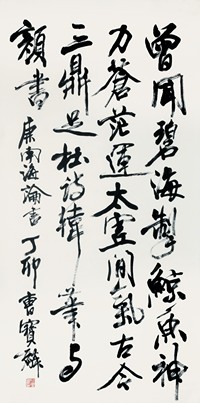 曾闻碧海掣鲸鱼神
力苍茫運太虚间氣古今
三鼎足杜詩韓筆与
顏書 康南海論書 丁卯 曹寶麟